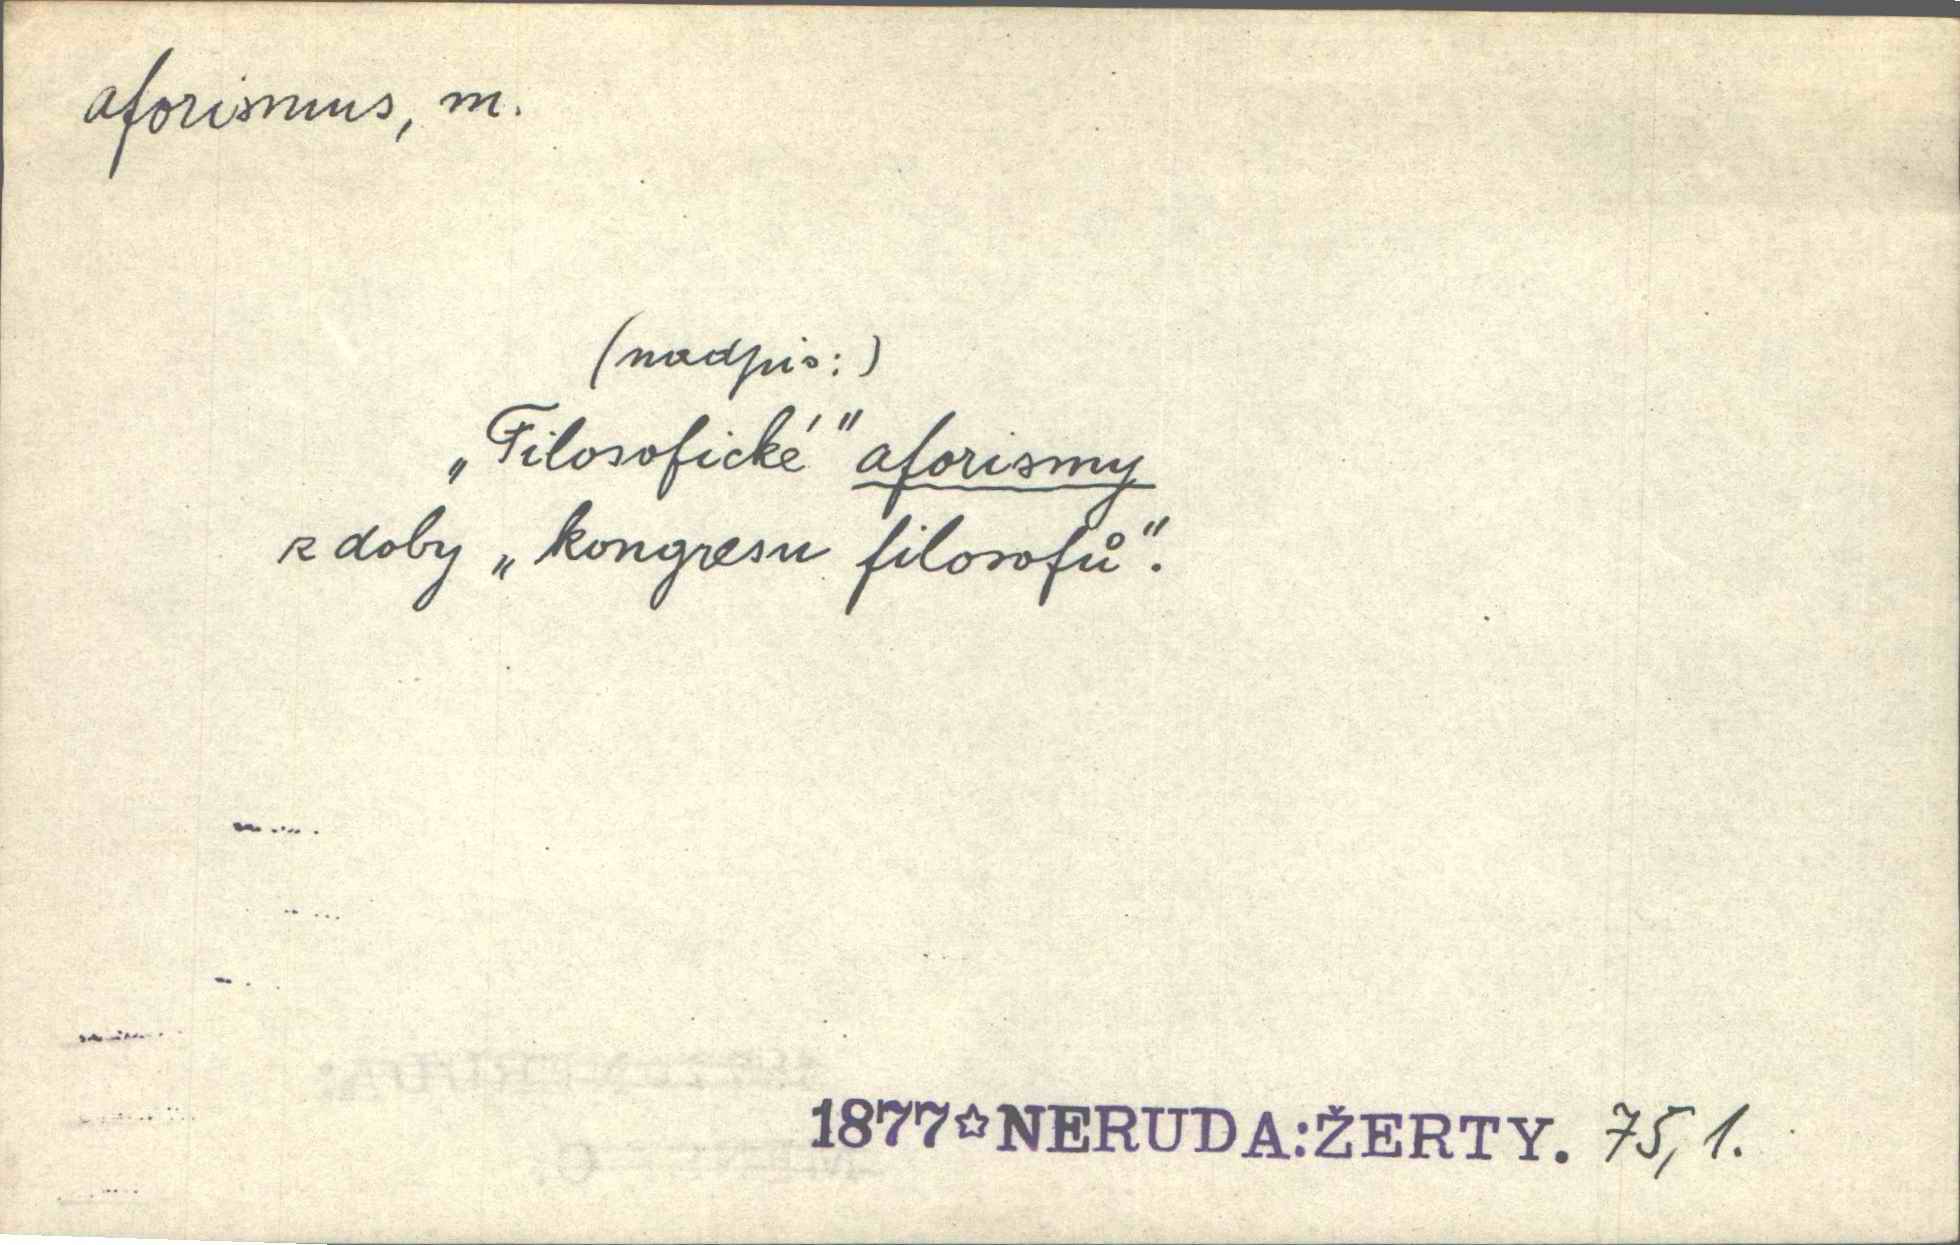 aforismus, m.
(nadpis:)
„Filosofické" aforismy
z doby „kongresu filosofů".
1877☆NERUDA:ŽERTY. 75, 1.